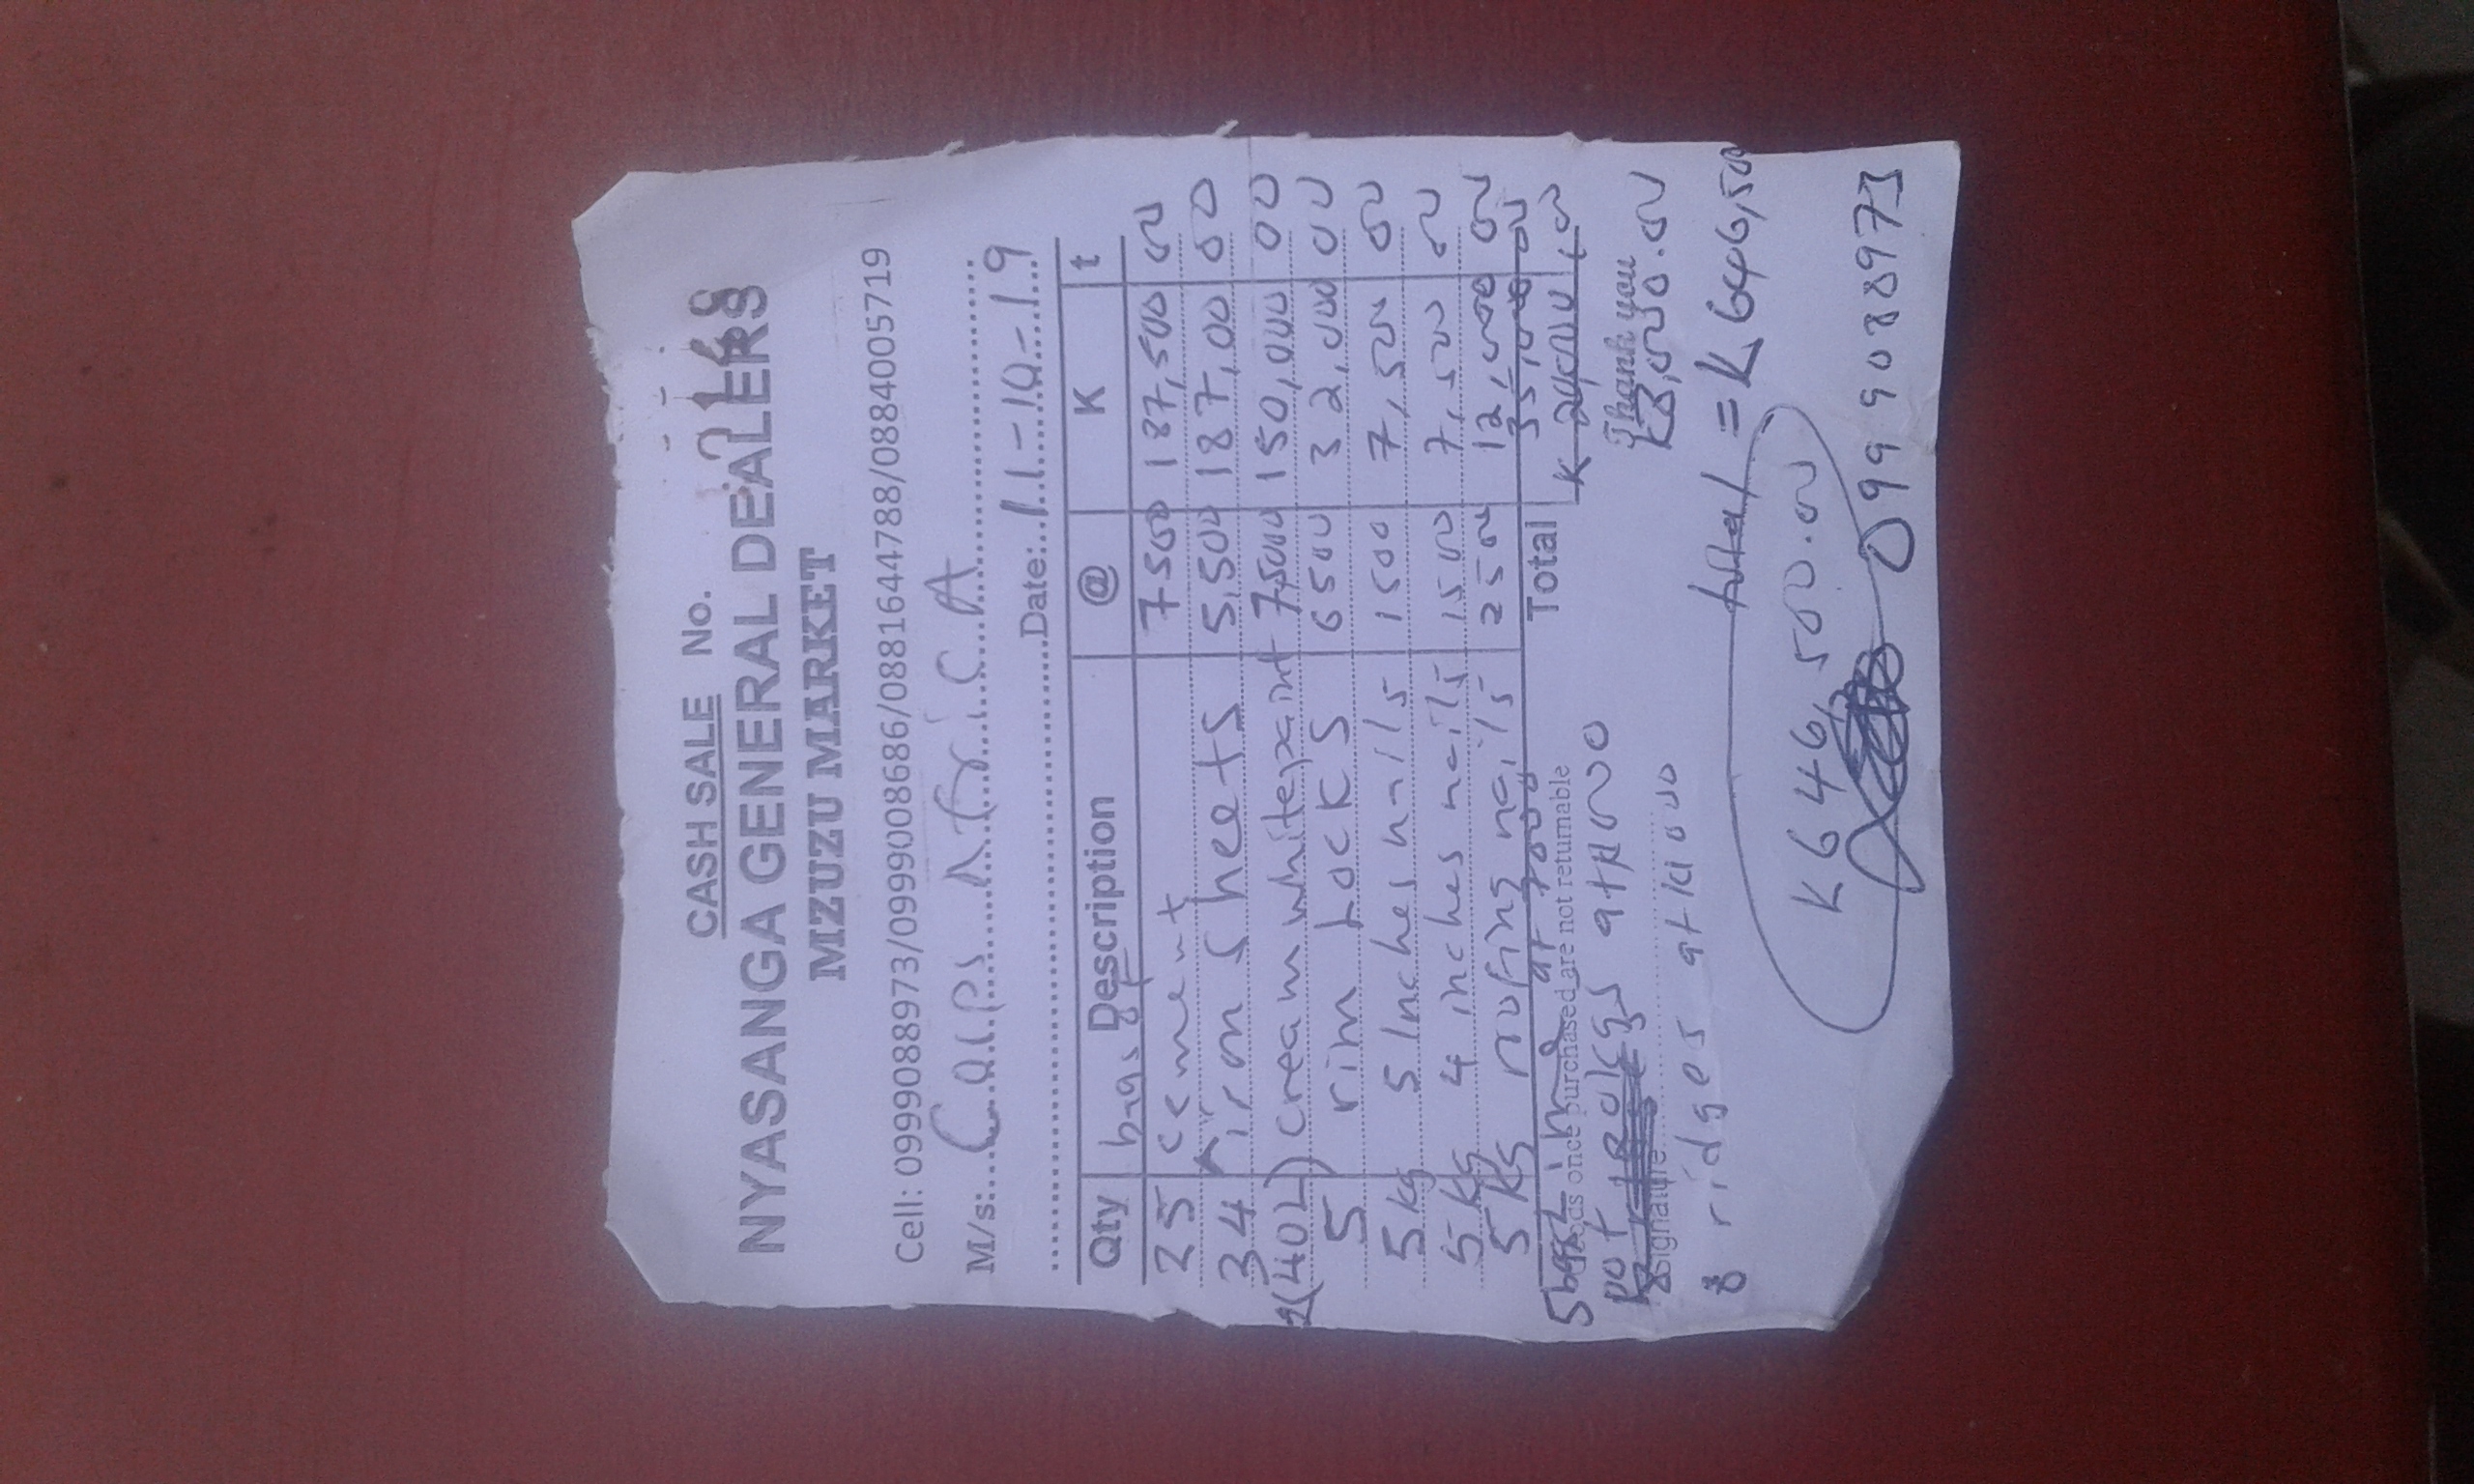 CASH SALE No. 2148
NYASANGA GENERAL DEALERS
MZUZU MARKET
Cell: 0999088973/0999008686/0881644788/0884005719
M/s: CaIPs AfriCA
Date: 11-10-19
Qty Description @ K t
25 bags of cement 7500 187,500 00
34 iron sheets 5,500 187,00 00
1(40L) cream white paint 75000 150,000 00
5 rim Locks 6500 32,000 00
5 kg 5 Inches nails 1500 7,500 00
5 kg 4 inches nails 1500 7,500 00
5 kg roofing nails 2500 12,000 00
5 bags at 35,000 00
Total K
Goods once purchased are not returnable
Thank you
at
Signature
8 ridges at
total = K 646,500
K 646,500.00
0999088973